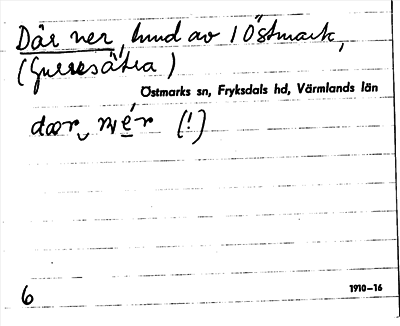 Där ner, hmd av 1 Östmark,
(Gurresätra)
Östmarks sn, Fryksdals hd, Värmlands län
dær nér (!)
6
1910–16